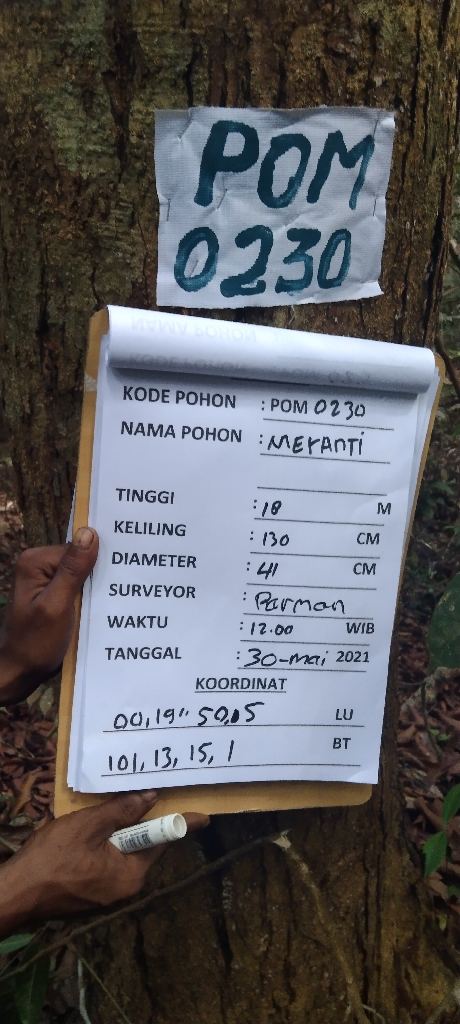 POM
0230
KODE POHON : POM 0230
NAMA POHON : Meranti
TINGGI : 18 M
KELILING : 130 CM
DIAMETER : 41 CM
SURVEYOR : Parman
WAKTU : 12.00 WIB
TANGGAL : 30-mai 2021
KOORDINAT
00,19" 50,05 LU
101, 13, 15, 1 BT